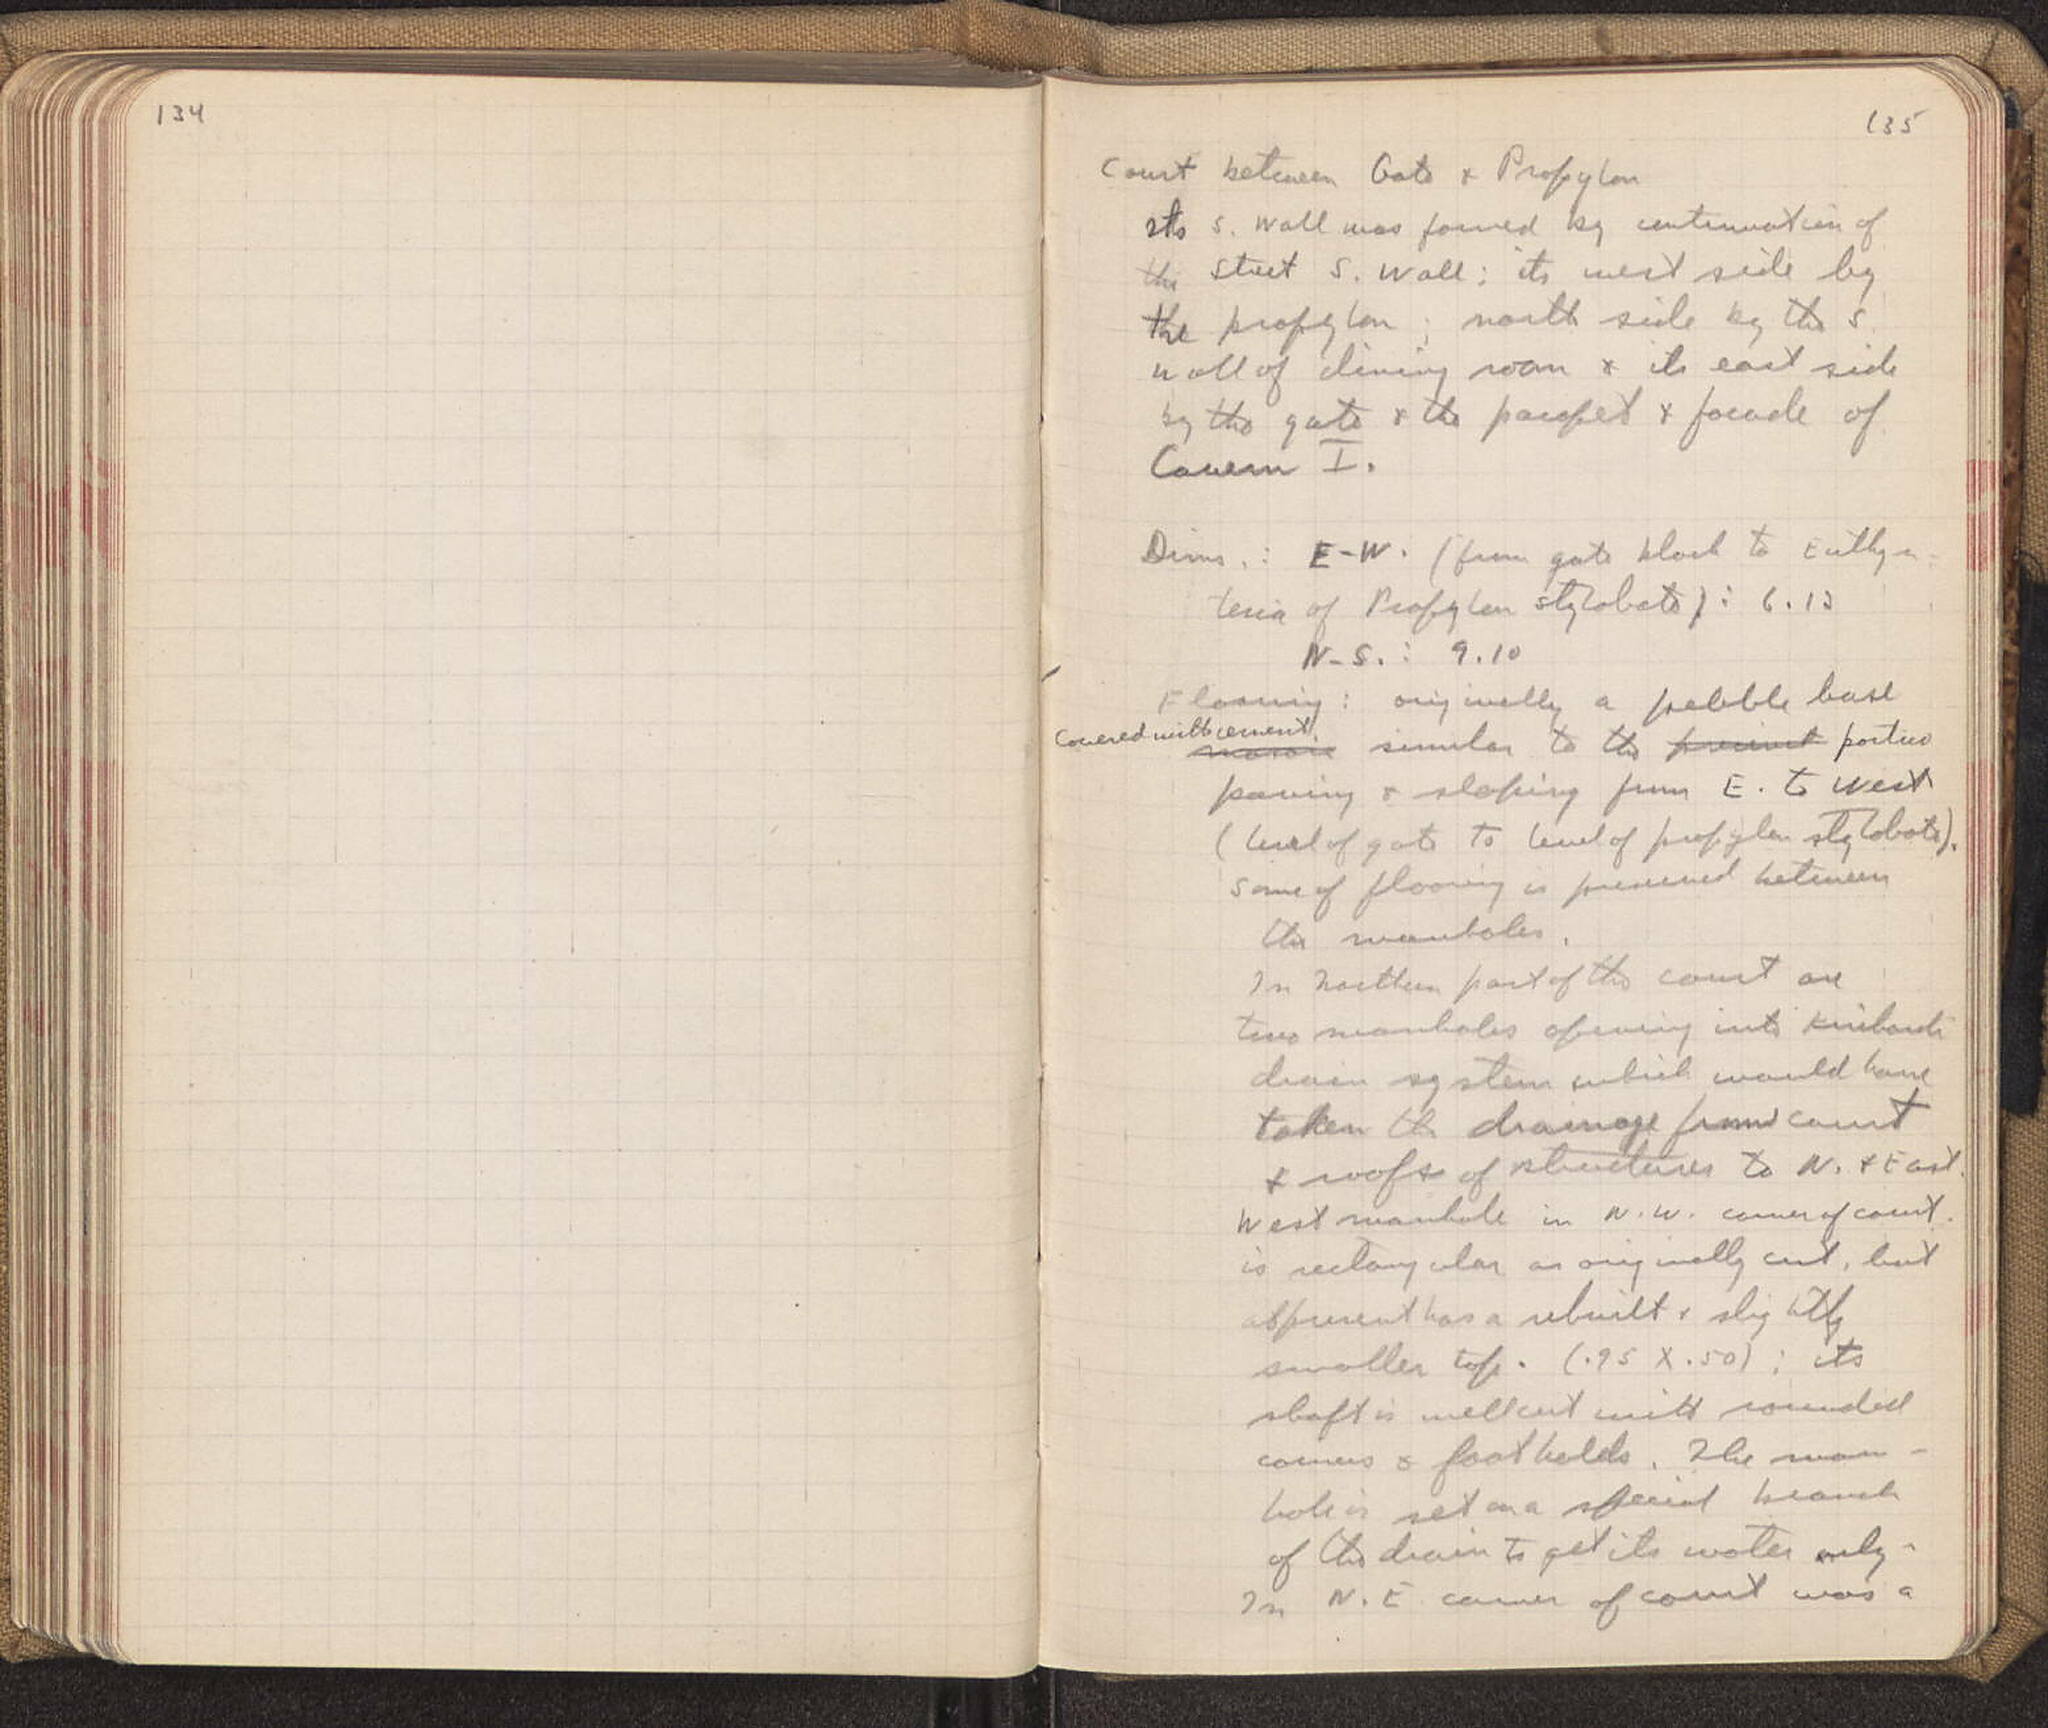 134
135
Court between Gate & Propylon
Its S. Wall was formed by continuation of
the Street S. Wall; its west side by
the propylon; north side by the S.
wall of dining room & its east side
by the gate & the parapet & facade of
Cavern I.
Dims.: E-W. (from gate block to Euthyn-
teria of Propylon stylobate): 6.13
N-S.: 9.10
Flooring: originally a pebble base
covered with cement,
similar to the precinct portico
paving & sloping from E. to West
(level of gate to level of propylon stylobate).
Some of flooring is preserved between
the manholes.
In northern part of the court are
two manholes opening into
drain system which would have
taken the drainage from court
& roofs of structures to N. & East.
West manhole in N.W. corner of court.
is rectangular as originally cut, but
at present has a rebuilt & slightly
smaller top. (.95 X .50); its
shaft is well cut with rounded
corners & footholds. The man-
hole is set on a special branch
of the drain to get its water only.
In N.E corner of court was a